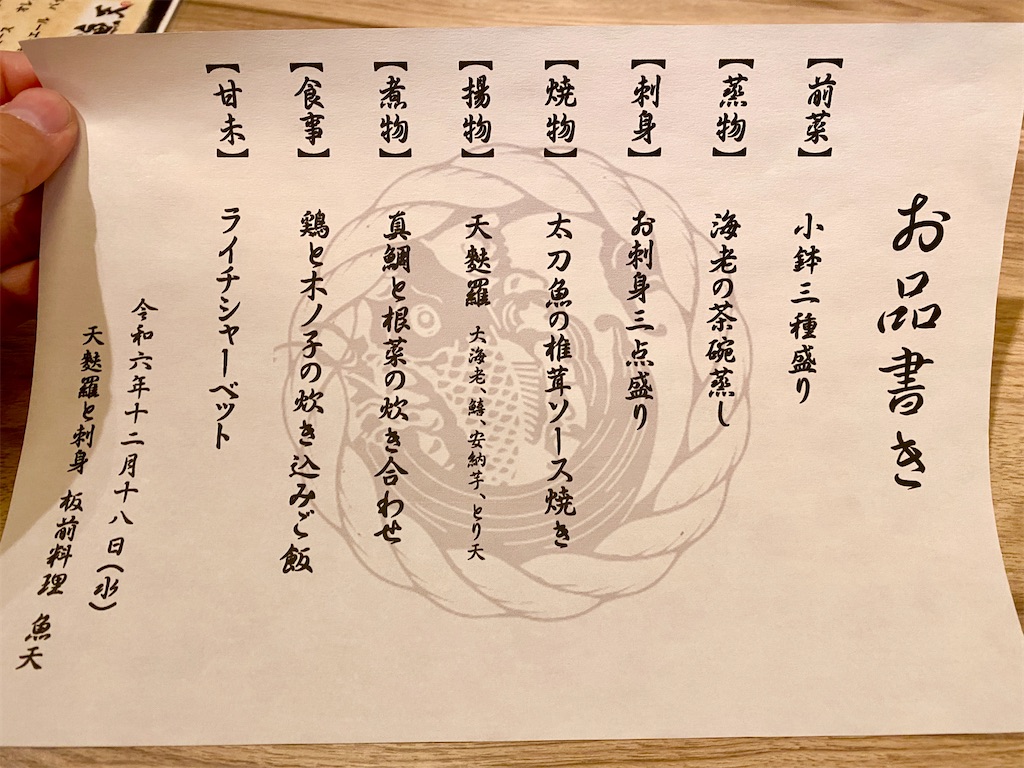 お品書き
【前菜】 小鉢三種盛り
【蒸物】 海老の茶碗蒸し
【刺身】 お刺身三点盛り
【焼物】 太刀魚の椎茸ソース焼き
【揚物】 天麩羅 大海老、鱚、安納芋、とり天
【煮物】 真鯛と根菜の炊き合わせ
【食事】 鶏と木ノ子の炊き込みご飯
【甘未】 ライチシャーベット
令和六年十二月十八日(水)
天麩羅と刺身 板前料理 魚天